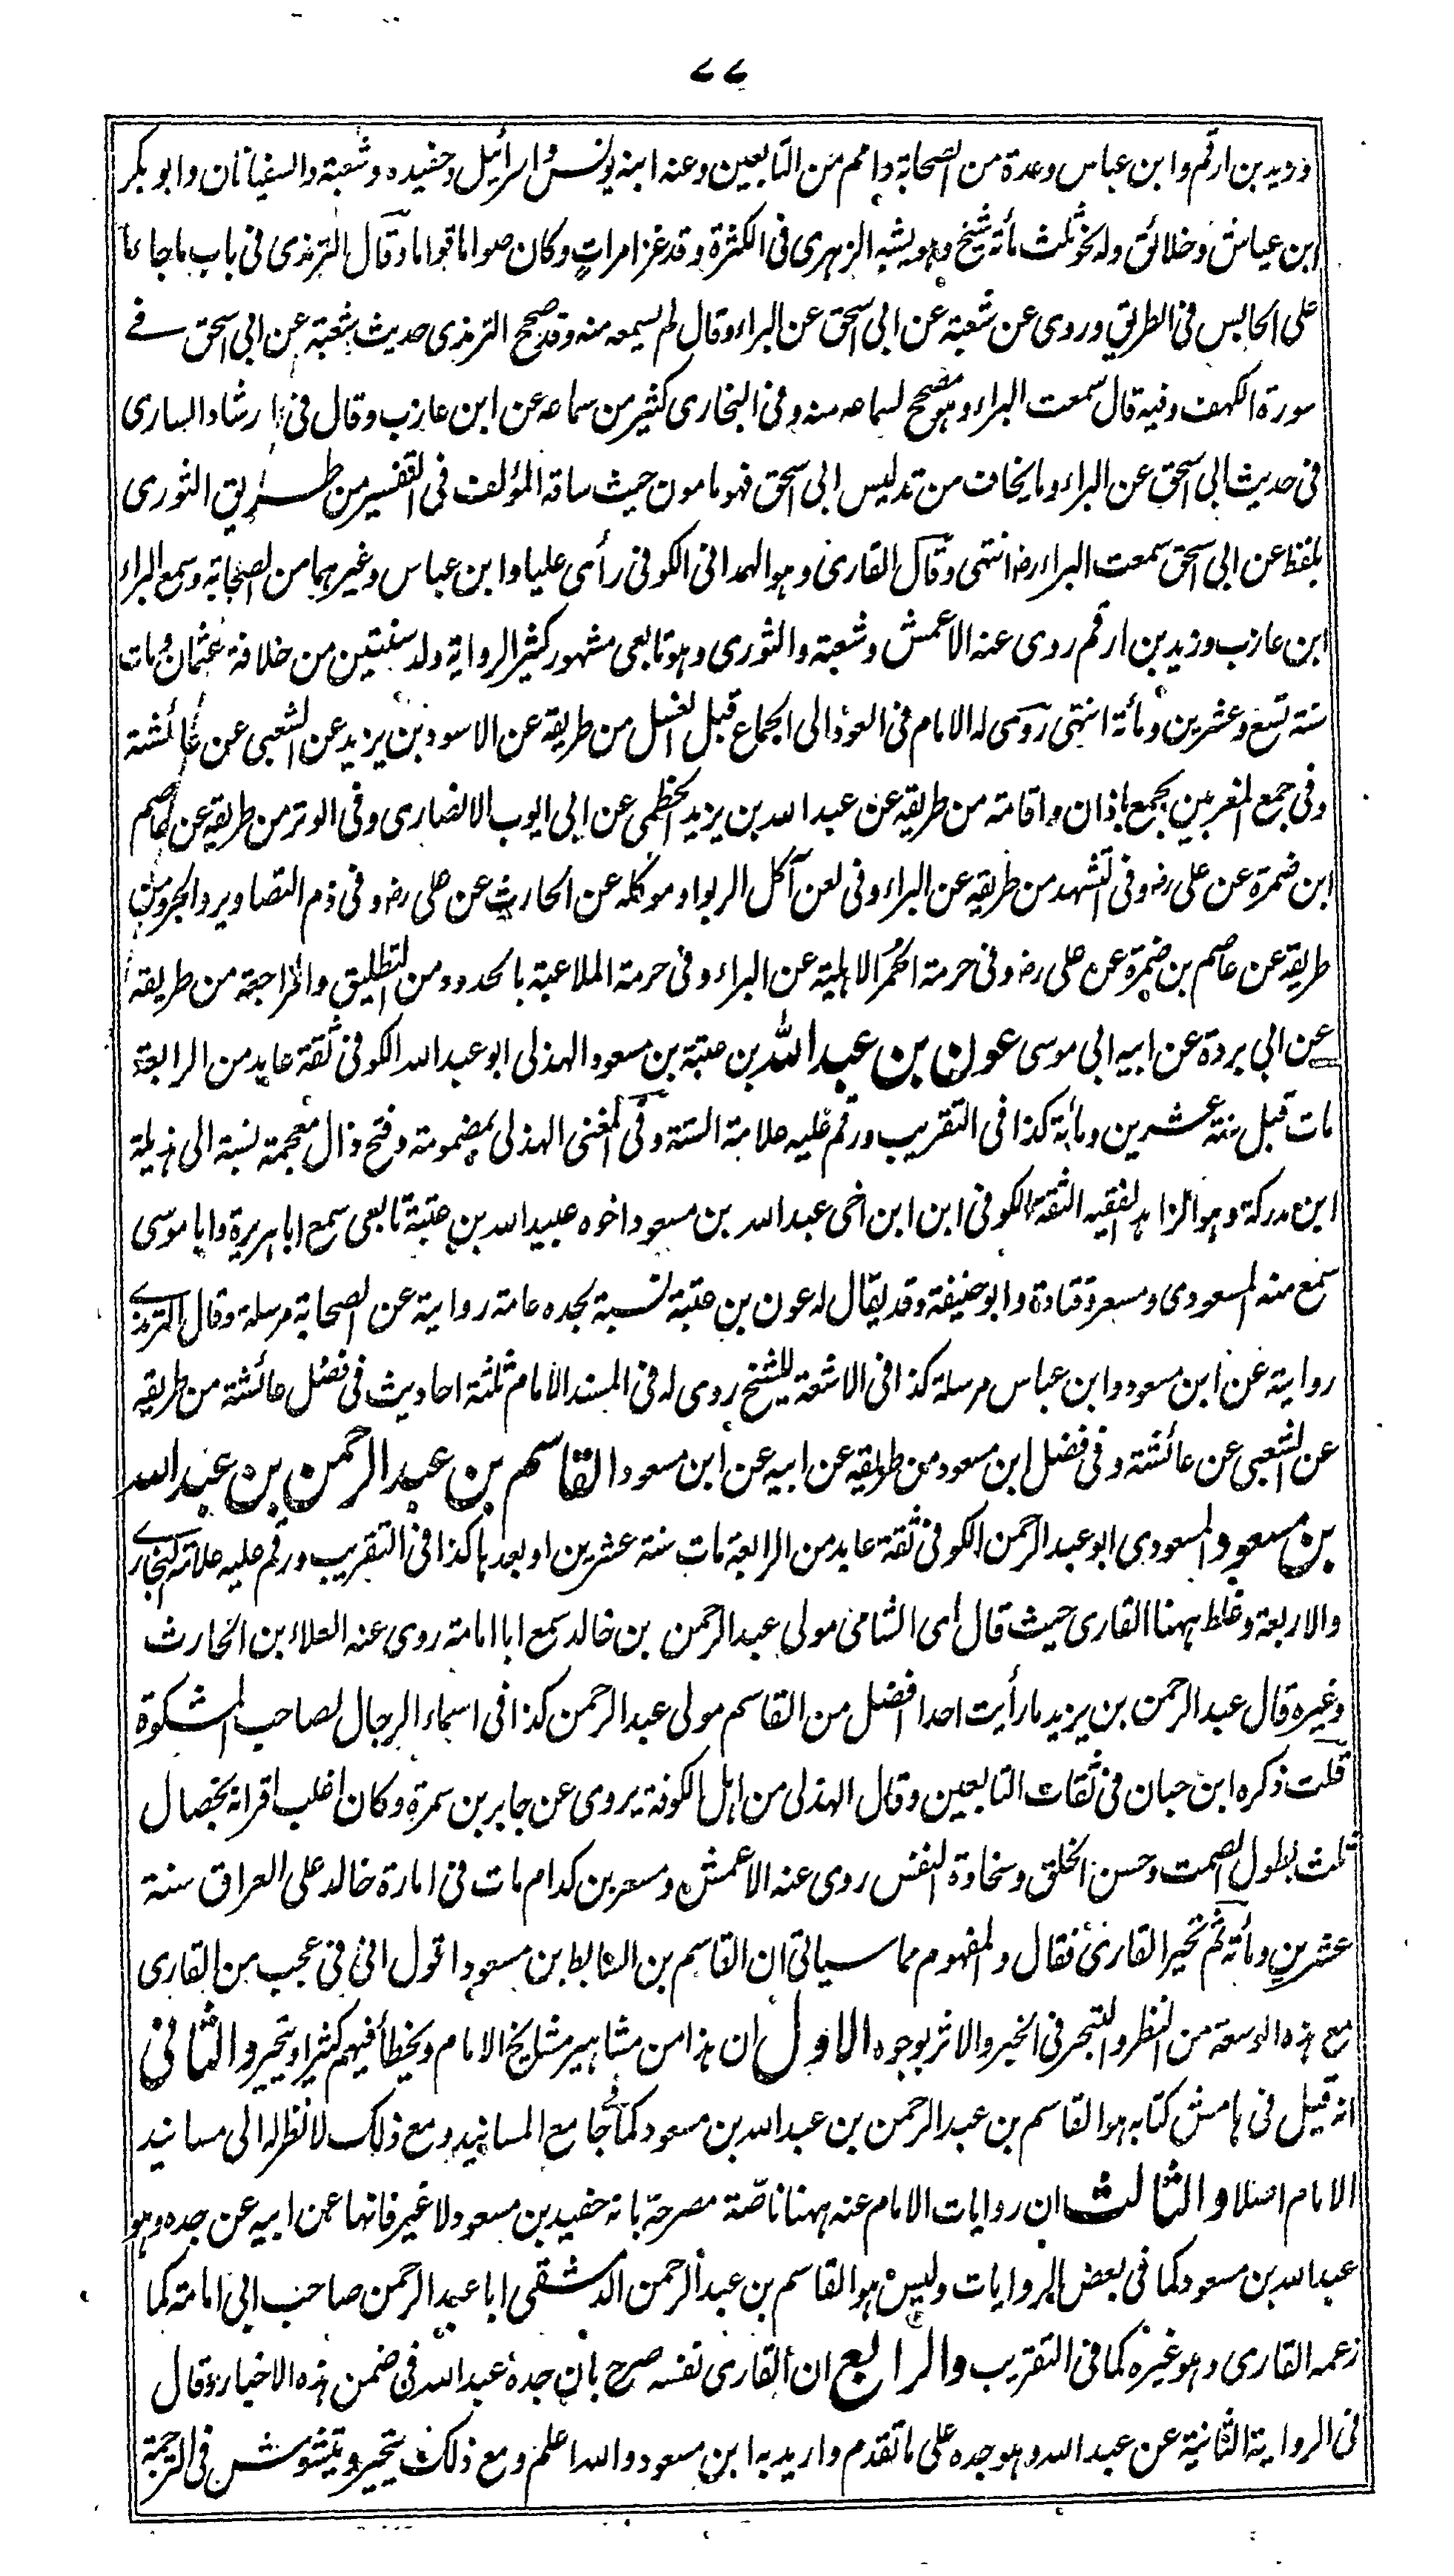 ٧٧
وزيد بن ارقم وابن عباس وعدة من الصحابة وامم من التابعين وعنه ابنه يونس واسرائيل وحفيده وشعبة والسفيانان وابو بكر
ابن عياش وخلائق وله نحو ثلث مأة شيخ وهو يشبه الزهرى فى الكثرة وقد غزا مرات وكان صواما قواما وقال الترمذى فى باب ما جاء
على الجالس فى الطريق وروى عن شعبة عن ابى اسحق عن البراء وقال لم يسمعه منه وقد صحح الترمذى حديث شعبة عن ابى اسحق فى
سورة الكهف وفيه قال سمعت البراء وهو مصحح لسماعه منه وفى البخارى كثير من سماعه عن ابن عازب وقال فى ارشاد السارى
فى حديث ابى اسحق عن البراء وما يخاف من تدليس ابى اسحق فهو مامون حيث ساقه المؤلف فى التفسير من طريق الثورى
بلفظ عن ابى اسحق سمعت البراء رضـ انتهى وقال القارى وهو الهمدانى الكوفى رأى عليا وابن عباس وغيرهما من الصحابة وسمع البراء
ابن عازب وزيد بن ارقم روى عنه الاعمش وشعبة والثورى وهو تابعى مشهور كثير الرواية ولد سنتين من خلافة عثمان ومات
سنة تسع وعشرين ومأة انتهى روى له الامام فى العود الى الجماع قبل الغسل من طريقه عن الاسود بن يزيد عن الشعبى عن عائشة
وفى جمع المغربين بجمع باذان واقامة من طريقه عن عبد الله بن يزيد الخطمى عن ابى ايوب الانصارى وفى الوتر من طريقه عن عاصم
ابن ضمرة عن على رضـ وفى التشهد من طريقه عن البراء وفى لعن آكل الربوا وموكله عن الحارث عن على رضـ وفى ذم التصاوير والجرو من
طريقه عن عاصم بن ضمرة عن على رضـ وفى حرمة الحمر الاهلية عن البراء وفى حرمة الملاعبة بالحدود من التطليق والمراجعة من طريقه
عن ابى بردة عن ابيه ابى موسى عون بن عبد الله بن عتبة بن مسعود الهذلى ابو عبد الله الكوفى ثقة عابد من الرابعة
مات قبل سنة عشرين ومأية كذا فى التقريب ورقم عليه علامة الستة وفى المغنى الهذلى بمضمومة وفتح ذال معجمة نسبة الى هذيلة
ابن مدركة وهو الزاهد الفقيه الثقة الكوفى ابن ابن اخى عبد الله بن مسعود اخوه عبيد الله بن عتبة تابعى سمع ابا هريرة وابا موسى
سمع منه المسعودى ومسعر وقتادة وابو حنيفة وقد يقال له عون بن عتبة نسبة لجده عامة رواية عن الصحابة مرسلة وقال الترمذى
رواية عن ابن مسعود وابن عباس مرسلة كذا فى الاشعة للشيخ روى له فى المسند الامام ثلثة احاديث فى فضل عائشة من طريقه
عن الشعبى عن عائشة وفى فضل ابن مسعود من طريقه عن ابيه عن ابن مسعود القاسم بن عبد الرحمن بن عبد الله
بن مسعود المسعودى ابو عبد الرحمن الكوفى ثقة عابد من الرابعة مات سنة عشرين او بعدها كذا فى التقريب ورقم عليه علامة البخارى
والاربعة وغلط ههنا القارى حيث قال اى الشامى مولى عبد الرحمن بن خالد سمع ابا امامة روى عنه العلاء بن الحارث
وغيره قال عبد الرحمن بن يزيد ما رأيت احدا افضل من القاسم مولى عبد الرحمن كذا فى اسماء الرجال لصاحب المشكوة
قلت ذكره ابن حبان فى ثقات التابعين وقال الهذلى من اهل الكوفة يروى عن جابر بن سمرة وكان اغلب اقرانه بخصال
ثلث بطول الصمت وحسن الخلق وسخاوة النفس روى عنه الاعمش ومسعر بن كدام مات فى امارة خالد على العراق سنة
عشرين ومأة ثم تحير القارى فقال والمفهوم مما سياتى ان القاسم بن بن مسعود اقول انى فى عجب من القارى
مع هذه الوسعة من النظر والتبحر فى الخبر والاثر بوجوه الاول ان هذا من مشاهير مشايخ الامام ويخطأ فيهم كثيرا ويتحير والثانى
انه قيل فى هامش كتابه هو القاسم بن عبد الرحمن بن عبد الله بن مسعود كما فى جامع المسانيد ومع ذلك لا نظر له الى مسانيد
الامام اصلا والثالث ان روايات الامام عنه ههنا ناصة مصرحة بانه حفيد بن مسعود لا غير فانها عن ابيه عن جده وهو
عبد الله بن مسعود كما فى بعض الروايات وليس هو القاسم بن عبد الرحمن الدمشقى ابا عبد الرحمن صاحب ابى امامة كما
زعمه القارى وهو غيره كما فى التقريب والرابع ان القارى نفسه صرح بان جده عبد الله فى ضمن هذه الاخبار وقال
فى الرواية الثانية عن عبد الله وهو جده على ما تقدم واريد به ابن مسعود والله اعلم ومع ذلك يتحير ويتشوش فى الترجمة